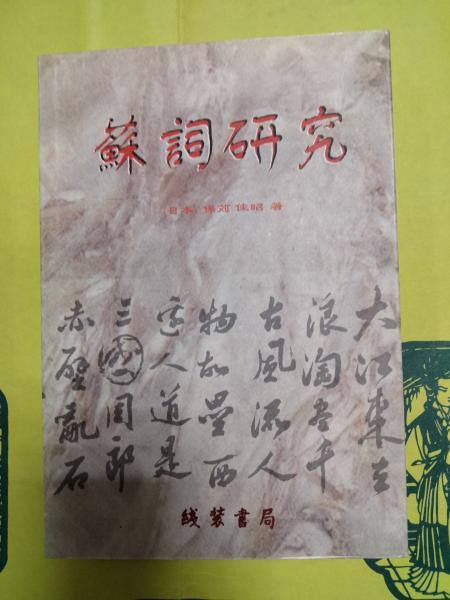 蘇詞研究
日本 保苅佳昭 著
大江東去
浪淘盡千
古風流人
物故壘西
邊人道是
三國周郎
赤壁亂石
线装書局